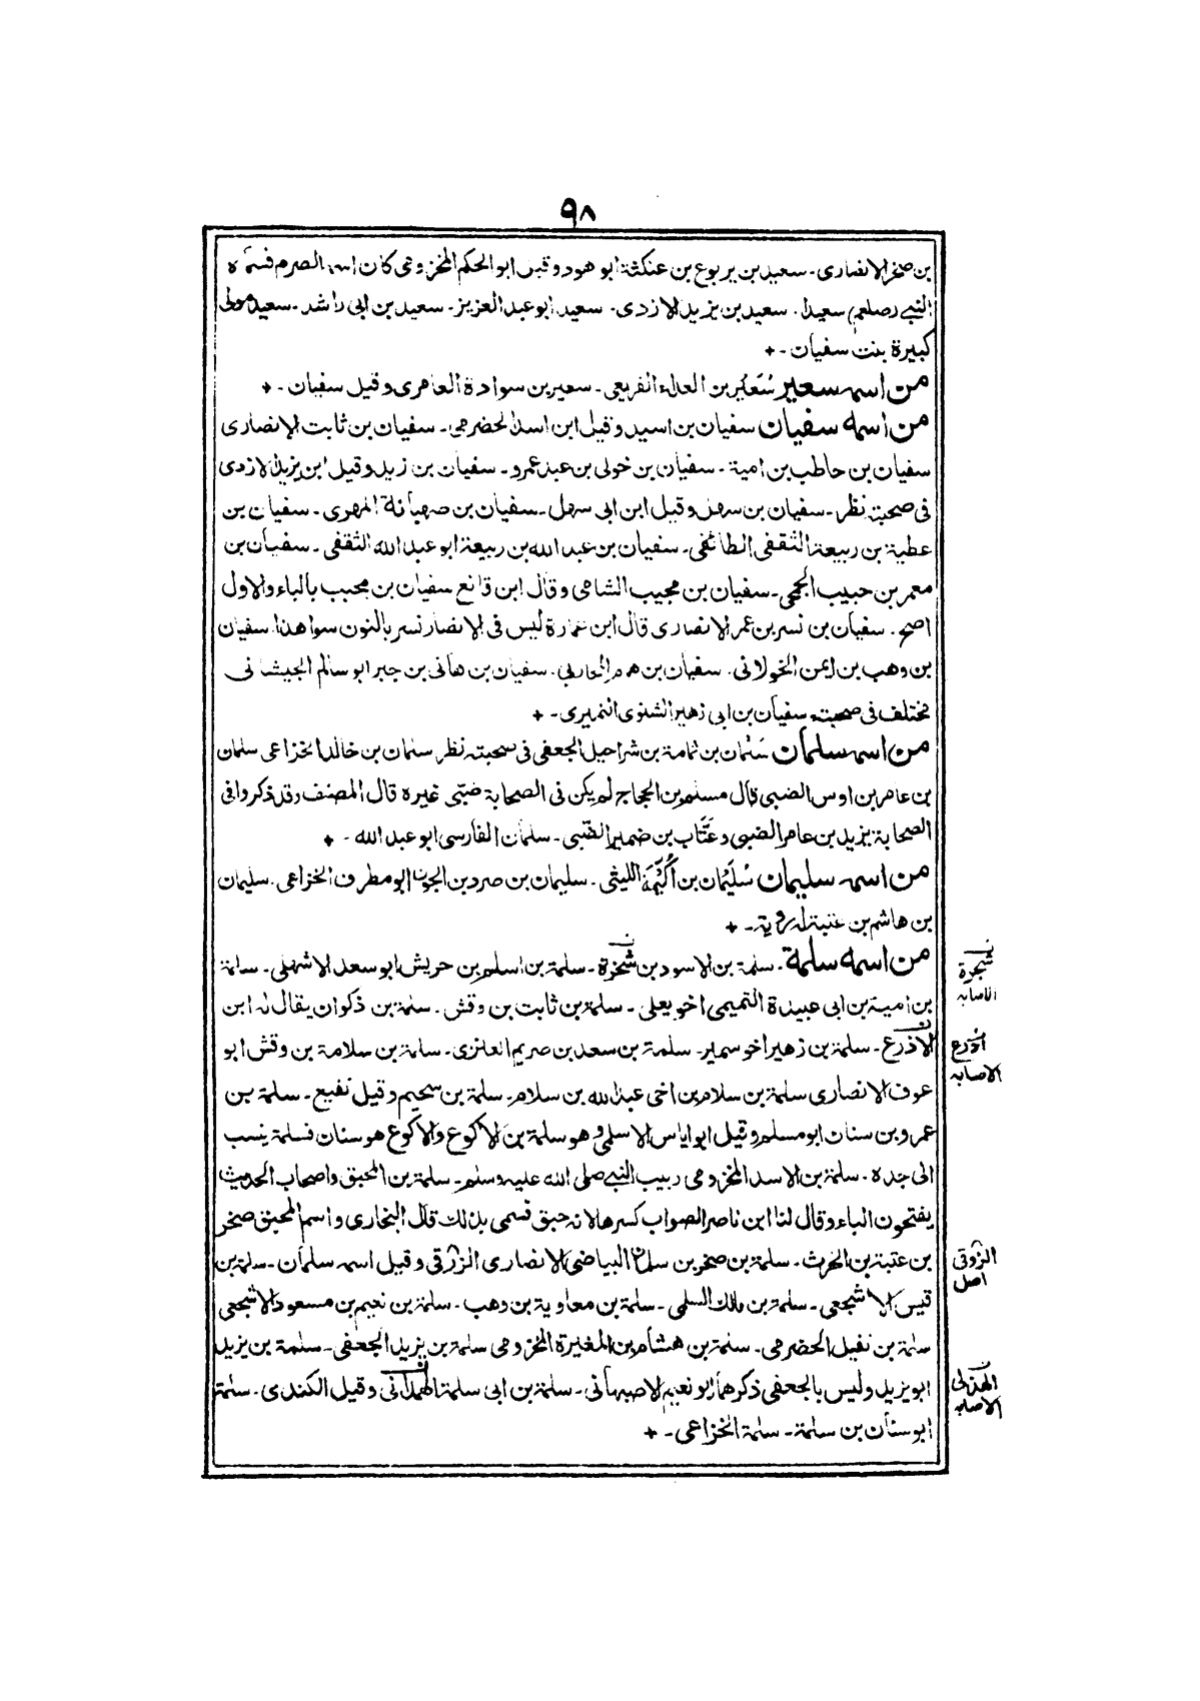 ٩٨
بن صخر الانصاری۔ سعید بن یربوع بن عنکثة ابو هود وقیل ابو الحکم المخزومی کان اسمه الصرم فسماه
النبی (صلعم) سعیدا۔ سعید بن یزید الازدی۔ سعید ابو عبد العزیز۔ سعید بن ابی راشد۔ سعید مولی
کبیرة بنت سفیان۔
من اسمه سعیر سُعَیر بن العداء الفریعی۔ سعیر بن سوادة العامری وقیل سفیان۔
من اسمه سفیان سفیان بن اسید وقیل ابن اسد الحضرمی۔ سفیان بن ثابت الانصاری
سفیان بن حاطب بن امیة۔ سفیان بن خولی بن عبد عمرو۔ سفیان بن زید وقیل ابن یزید الازدی
فی صحبته نظر۔ سفیان بن سهل وقیل ابن ابی سهل۔ سفیان بن صهبانة المهری۔ سفیان بن
عطیة بن ربیعة الثقفی الطائفی۔ سفیان بن عبد الله بن ربیعة ابو عبد الله الثقفی۔ سفیان بن
معمر بن حبیب الجمحی۔ سفیان بن مجیب الشامی وقال ابن قانع سفیان بن محبب بالباء والاول
اصح۔ سفیان بن نسر بن عمر الانصاری قال ابن عمارة لیس فی الانصار نسر بالنون سوا هذا۔ سفیان
بن وهب بن ایمن الخولانی۔ سفیان بن همام المحاربی۔ سفیان بن هانی بن جبر ابو سالم الجیشانی
مختلف فی صحبته۔ سفیان بن ابی زهیر الشنوی النمیری۔
من اسمه سلمان سَلمان بن ثمامة بن شراحیل الجعفی فی صحبته نظر سلمان بن خالد الخزاعی سلمان
بن عامر بن اوس الضبی قال مسلم بن الحجاج لم یکن فی الصحابة ضبّی غیره قال المصنف وقد ذکروا فی
الصحابة یزید بن عامر الضبی وعَتّاب بن ضمیر الضّبی۔ سلمان الفارسی ابو عبد الله۔
من اسمه سلیمان سُلَیمان بن اُکَیمَة اللیثی۔ سلیمان بن صرد بن الجون ابو مطرف الخزاعی۔ سلیمان
بن هاشم بن عتبة له رویة۔
من اسمه سلمة۔ سلمة بن الاسود بن شجرة۔ سلمة بن اسلم بن حریش ابو سعد الاشهلی۔ سلمة
ن شجرة
الاصابه
بن امیة بن ابی عبیدة التمیمی اخو یعلی۔ سلمة بن ثابت بن وقش۔ سلمة بن ذکوان یقال له ابن
الاذرع۔ سلمة بن زهیر اخو سمیر۔ سلمة بن سعد بن صریم العنزی۔ سلمة بن سلامة بن وقش ابو
ادرع
الاصابه
عوف الانصاری سلمة بن سلام بن اخی عبد الله بن سلام۔ سلمة بن سحیم وقیل نفیع۔ سلمة بن
عمرو بن سنان ابو مسلم وقیل ابو ایاس الاسلمی وهو سلمة بن الاکوع والاکوع هو سنان فسلمة ینسب
الی جده۔ سلمة بن الاسد المخزومی ربیب النبی صلی الله علیه وسلم۔ سلمة بن المحبق واصحاب الحدیث
یفتحون الباء وقال لنا ابن ناصر الصواب کسرها لانه حبق فسمی بذلک قال البخاری واسم المحبق صخر
بن عتبة بن الحرث۔ سلمة بن صخر بن سلمان البیاضی الانصاری الزرقی وقیل اسمه سلمان۔ سلمة بن
الزوقی
اصل
قیس الاشجعی۔ سلمة بن مالک السلمی۔ سلمة بن معاویة بن وهب۔ سلمة بن نعیم بن مسعود الاشجعی
سلمة بن نفیل الحضرمی۔ سلمة بن هشام بن المغیرة المخزومی سلمة بن یزید الجعفی۔ سلمة بن یزید
ابو یزید ولیس بالجعفی ذکرهما ابو نعیم الاصبهانی۔ سلمة بن ابی سلمة الهمدانی وقیل الکندی۔ سلمة
ن الهذلی
الاصابه
ابو سنان بن سلمة۔ سلمة الخزاعی۔